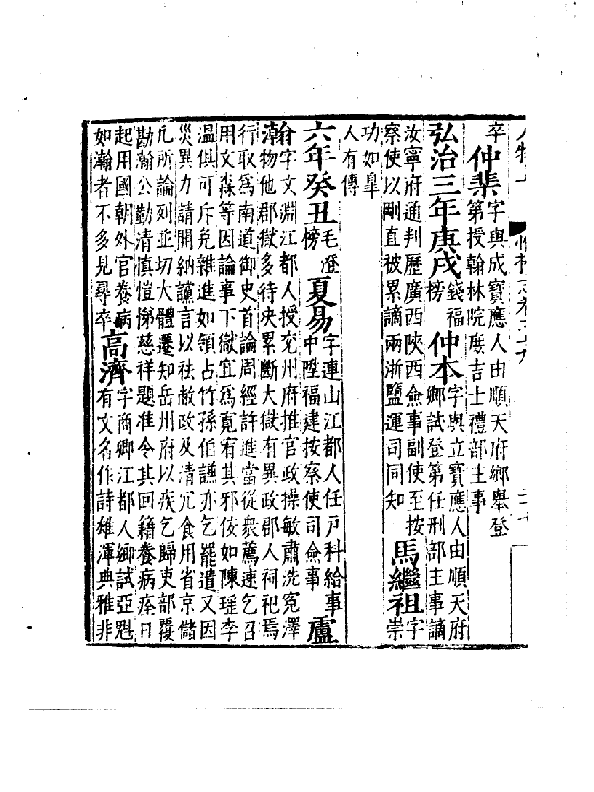 卒仲棐字與成寶應人由順天府鄉舉登第授翰林院庶吉士禮部主事
弘治三年庚戌錢福榜仲本字與立寶應人由順天府鄉試登第任刑部主事謫
汝寧府通判歷廣西陝西僉事副使至按察使以剛直被累謫兩浙鹽運司同知馬繼祖字崇
功如臯人有傳
六年癸丑毛澄榜夏易字連山江都人任戶科給事中陞福建按察使司僉事盧
瀚字文淵江都人授兗州府推官政操敏肅洗冤澤物他郡獄多待決累斷大獄有異政郡人祠祀焉
行取爲南道御史首論周經許進當從衆薦速乞召用文淼等因論事下獄宜爲寬宥其邪佞如陳瑤李
溫俱可斥免雜進如領占竹孫伯謙亦乞罷遣又因災異力請開納讜言以祛敝政及清冗食用省京儲
凡所論列並切大體遷知岳州府以疾乞歸吏部覆勘瀚公勤清慎愷悌慈祥題准令其回籍養病痊日
起用國朝外官養病如瀚者不多見尋卒高濟字商卿江都人鄉試亞魁有文名作詩雄渾典雅非